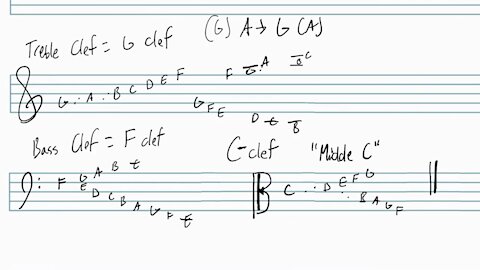 Treble Clef = G clef (G) A → G (A)
G A B C D E F F G A B C
G F E D C B
Bass Clef = F clef C-clef "Middle C"
F G A B C C D E F G
E D C B A G F E B A G F